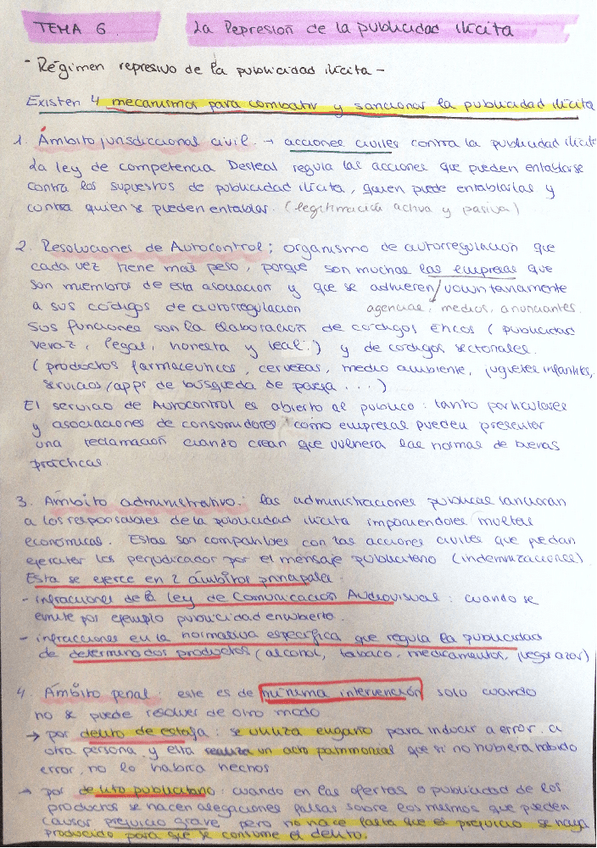 TEMA 6 La Represión de la publicidad ilícita
- Régimen represivo de la publicidad ilícita -
Existen 4 mecanismos para combatir y sancionar la publicidad ilícita
1. Ámbito jurisdiccional civil. → acciones civiles contra la publicidad ilícita
La ley de competencia Desleal regula las acciones que pueden entablarse
contra los supuestos de publicidad ilícita, quien puede entablarlas y
contra quien se pueden entablar. (legitimación activa y pasiva)
2. Resoluciones de Autocontrol: organismo de autorregulación que
cada vez tiene más peso, porque son muchas las empresas que
son miembros de esta asociación y que se adhieren voluntariamente
a sus códigos de autorregulación agencias, medios, anunciantes.
Sus funciones son la elaboración de códigos éticos (publicidad
veraz, legal, honesta y leal.) y de codigos sectoriales.
(productos farmaceuticos, cervezas, medio ambiente, juguetes infantiles,
servicios/apps de búsqueda de pareja ...)
El servicio de Autocontrol es abierto al público: tanto particulares
y asociaciones de consumidores como empresas pueden presentar
una reclamación cuando crean que vulnera las normas de buenas
prácticas
3. Ámbito administrativo: las administraciones publicas sancionan
a los responsables de la publicidad ilícita imponiendoles multas
económicas. Estas son compatibles con las acciones civiles que puedan
ejercitar los perjudicados por el mensaje publicitario (indemnizaciones)
Esta se ejerce en 2 ámbitos principales:
- infracciones de la ley de Comunicación Audiovisual: cuando se
emite por ejemplo publicidad encubierta.
- infracciones en la normativa específica que regula la publicidad
de determinados productos (alcohol, tabaco, medicamentos, juego azar)
4. Ámbito penal: este es de mínima intervención solo cuando
no se puede resolver de otro modo
→ por delito de estafa: se utiliza engaño para inducir a error a
otra persona y ella realiza un acto patrimonial que si no hubiera habido
error, no lo habría hecho
→ por delito publicitario: cuando en las ofertas o publicidad de los
productos se hacen alegaciones falsas sobre los mismos que pueden
causar prejuicio grave, pero no hace falta que el prejuicio se haya
producido para que se consume el delito.